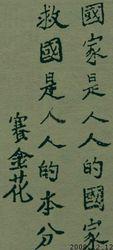 國家是人人的國家
救國是人人的本分
賽金花
2006 12 12